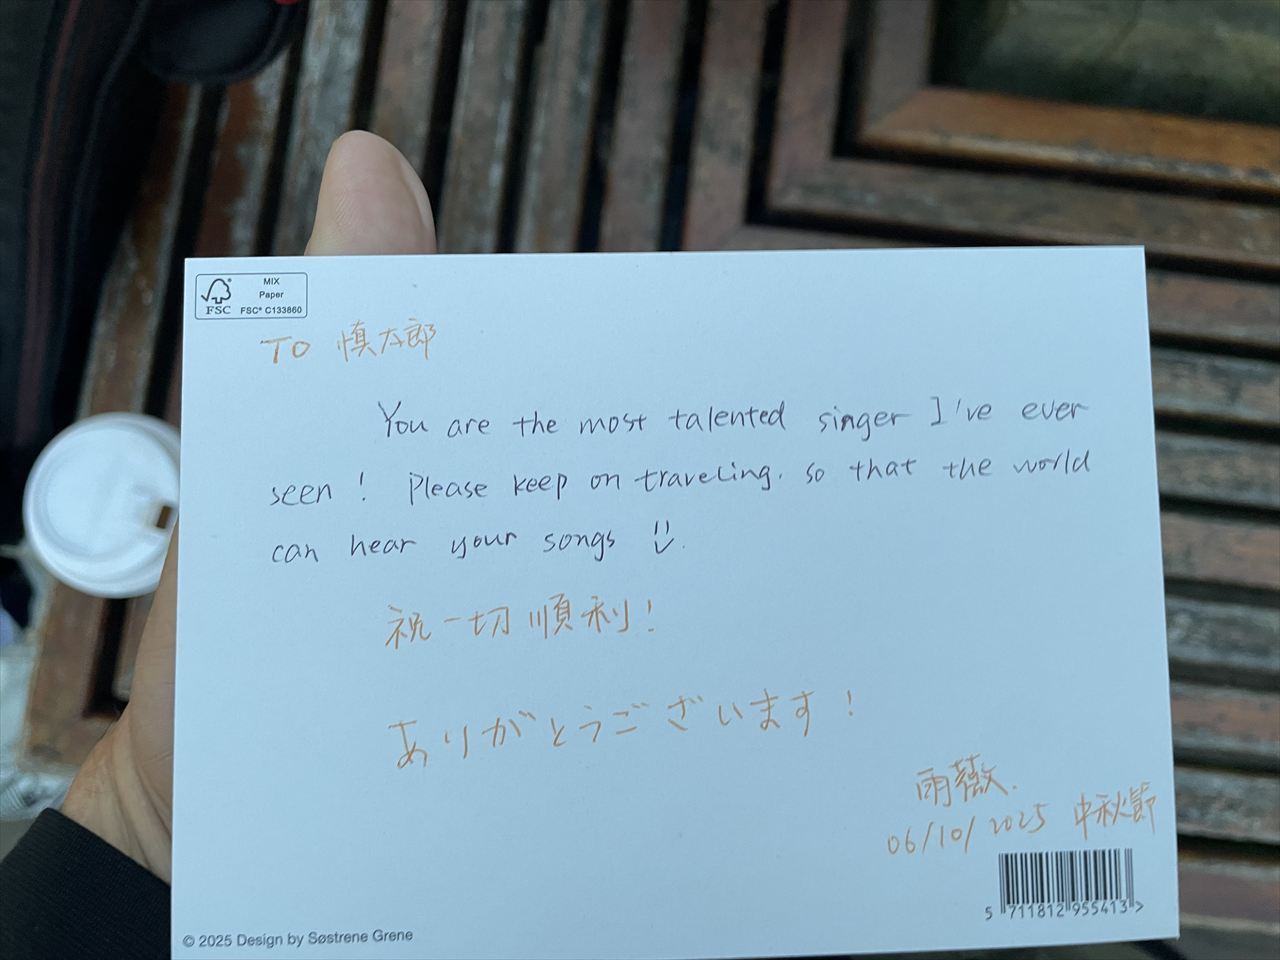 MIX
Paper
FSC
FSC® C133860
TO 慎太郎
You are the most talented singer I've ever
seen! Please keep on traveling. so that the world
can hear your songs
祝一切順利!
ありがとうございます!
雨薇.
06/10/2025 中秋節
5 711812 955413 >
© 2025 Design by Søstrene Grene